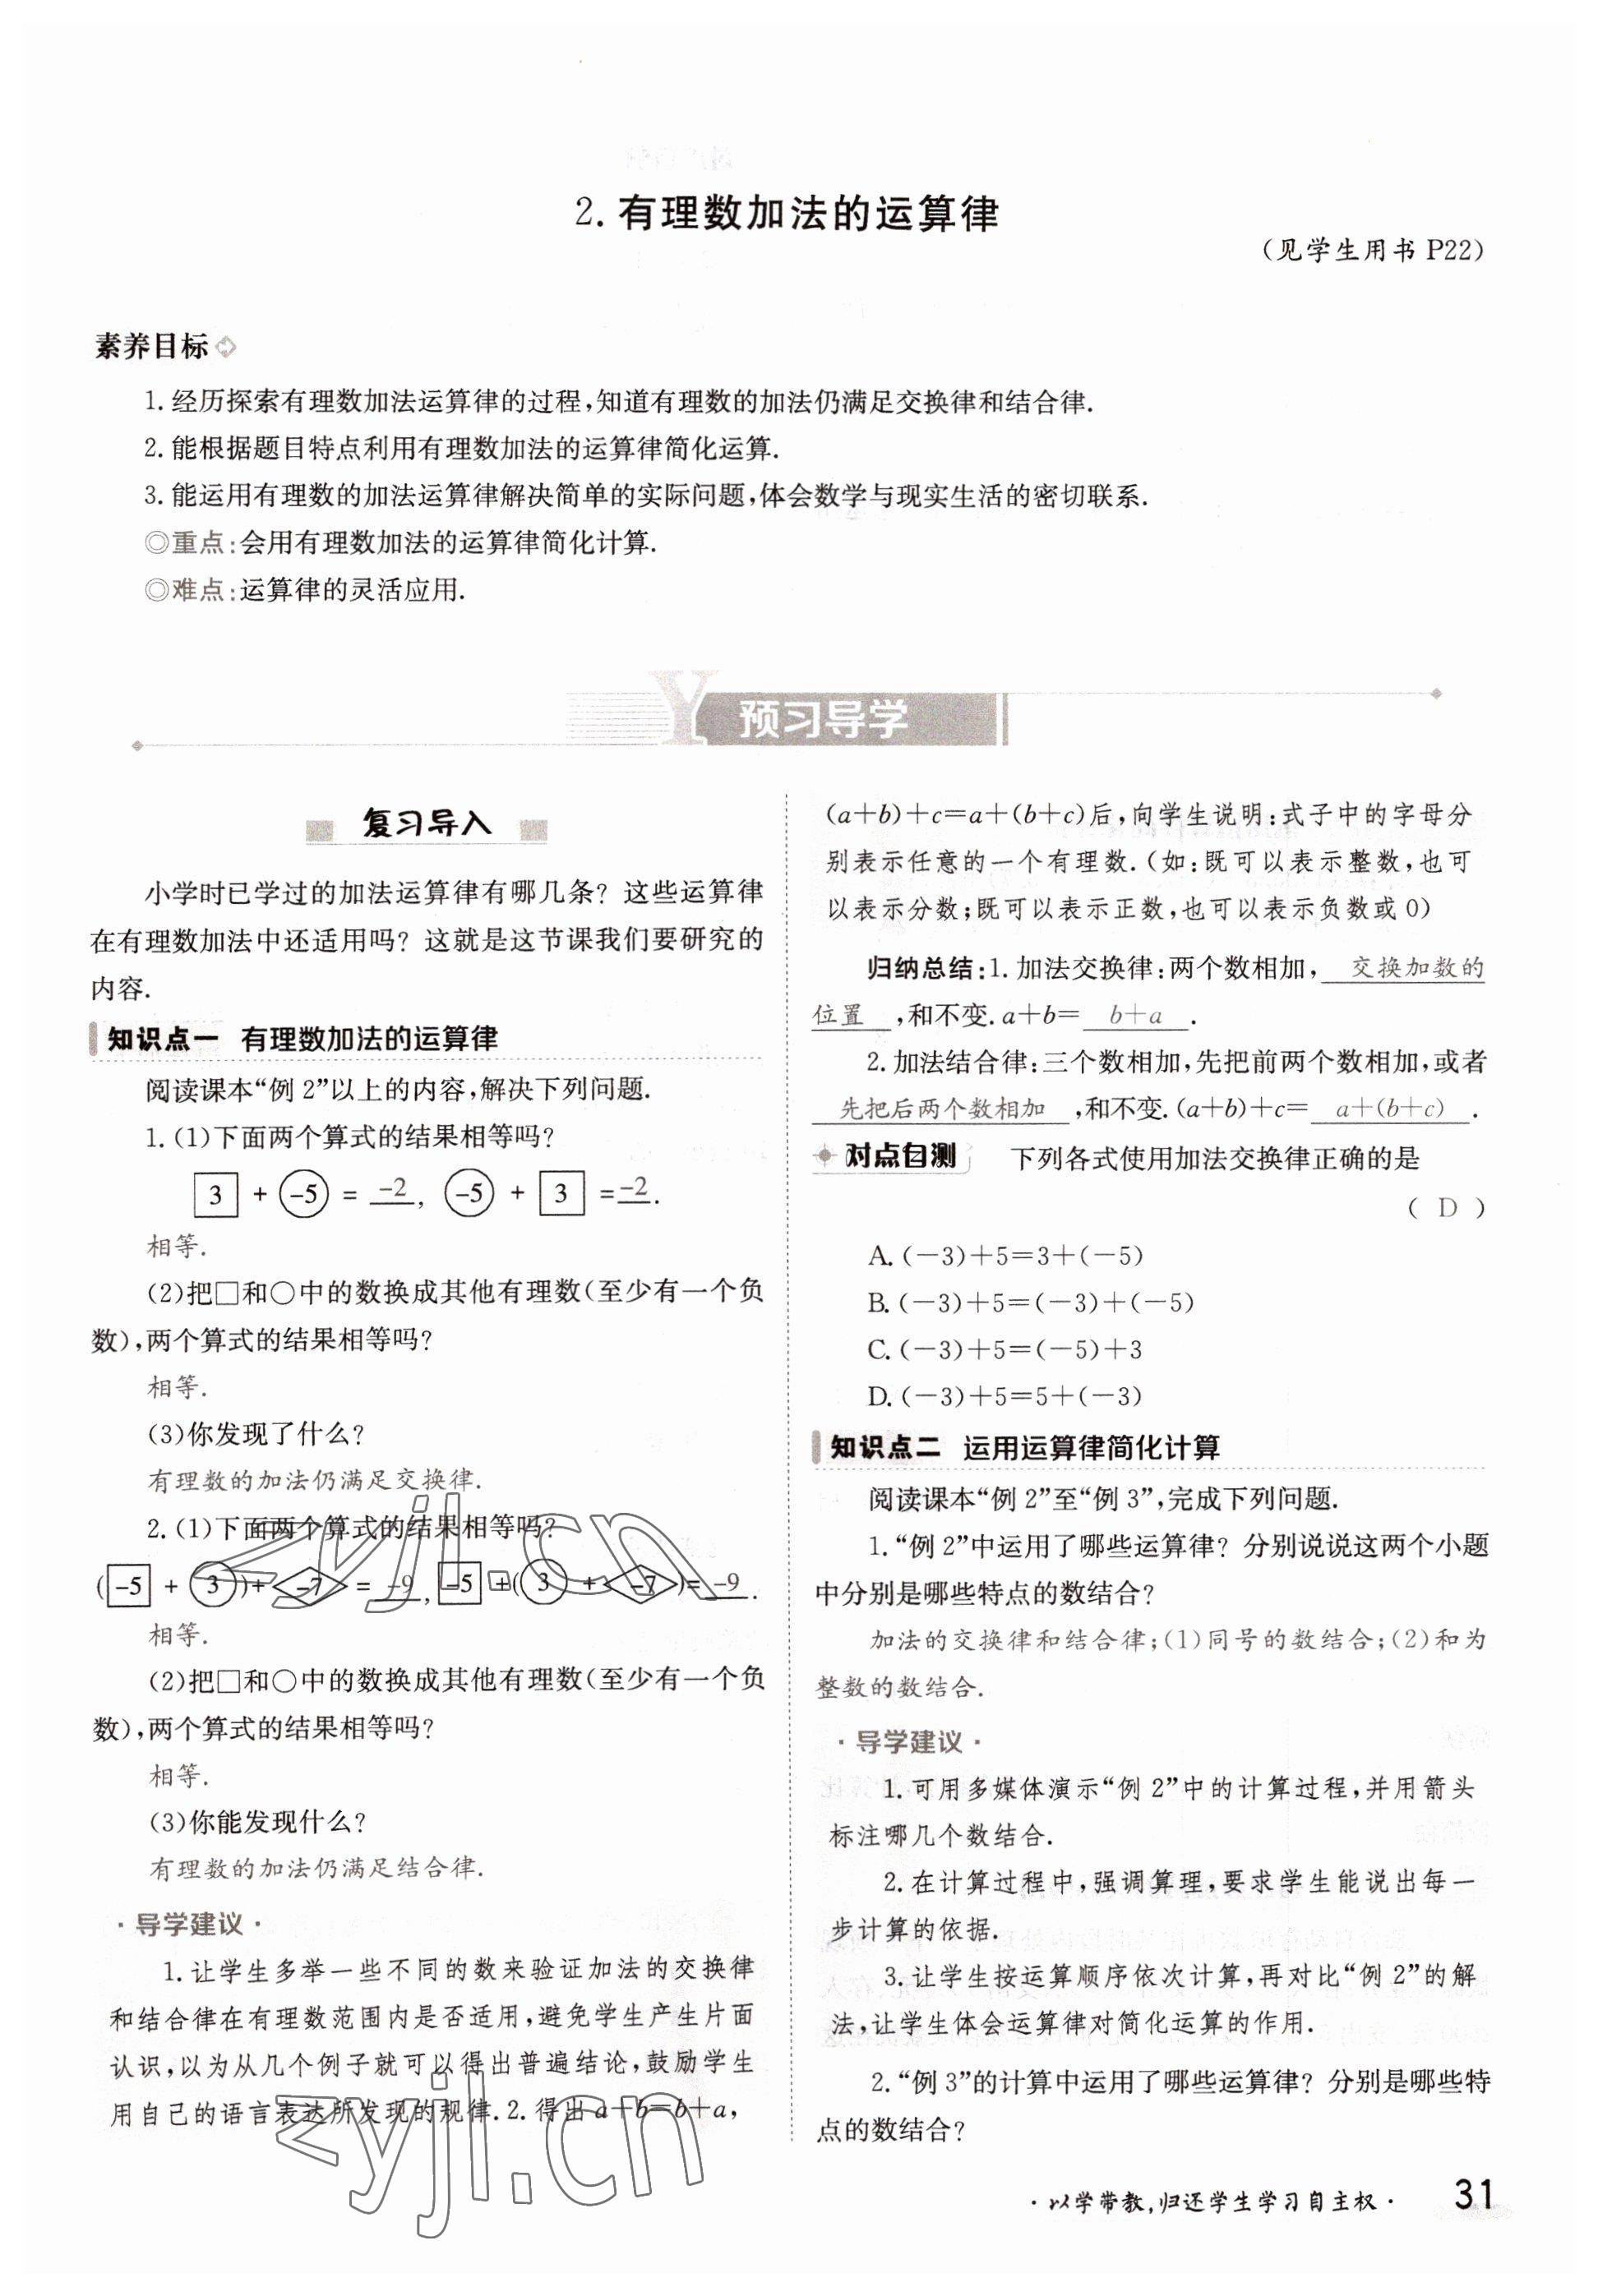 2. 有理数加法的运算律
(见学生用书 P22)
素养目标
1. 经历探索有理数加法运算律的过程,知道有理数的加法仍满足交换律和结合律.
2. 能根据题目特点利用有理数加法的运算律简化运算.
3. 能运用有理数的加法运算律解决简单的实际问题,体会数学与现实生活的密切联系.
◎重点:会用有理数加法的运算律简化计算.
◎难点:运算律的灵活应用.
Y 预习导学
复习导入
小学时已学过的加法运算律有哪几条? 这些运算律
在有理数加法中还适用吗? 这就是这节课我们要研究的
内容.
知识点一 有理数加法的运算律
阅读课本“例 2”以上的内容,解决下列问题.
1. (1)下面两个算式的结果相等吗?
3 + -5 = -2, -5 + 3 = -2.
相等.
(2)把□和○中的数换成其他有理数(至少有一个负
数),两个算式的结果相等吗?
相等.
(3)你发现了什么?
有理数的加法仍满足交换律.
2. (1)下面两个算式的结果相等吗?
(-5 + 3)+ -7 = -9, -5 +(3 + -7)= -9.
相等.
(2)把□和○中的数换成其他有理数(至少有一个负
数),两个算式的结果相等吗?
相等.
(3)你能发现什么?
有理数的加法仍满足结合律.
·导学建议·
1. 让学生多举一些不同的数来验证加法的交换律
和结合律在有理数范围内是否适用,避免学生产生片面
认识,以为从几个例子就可以得出普遍结论,鼓励学生
用自己的语言表达所发现的规律. 2. 得出 a+b=b+a,
(a+b)+c=a+(b+c)后,向学生说明:式子中的字母分
别表示任意的一个有理数.(如:既可以表示整数,也可
以表示分数;既可以表示正数,也可以表示负数或 0)
归纳总结:1. 加法交换律:两个数相加, 交换加数的
位置 ,和不变. a+b= b+a .
2. 加法结合律:三个数相加,先把前两个数相加,或者
先把后两个数相加 ,和不变. (a+b)+c= a+(b+c) .
对点自测 下列各式使用加法交换律正确的是
( D )
A. (-3)+5=3+(-5)
B. (-3)+5=(-3)+(-5)
C. (-3)+5=(-5)+3
D. (-3)+5=5+(-3)
知识点二 运用运算律简化计算
阅读课本“例 2”至“例 3”,完成下列问题.
1. “例 2”中运用了哪些运算律? 分别说说这两个小题
中分别是哪些特点的数结合?
加法的交换律和结合律;(1)同号的数结合;(2)和为
整数的数结合.
·导学建议·
1. 可用多媒体演示“例 2”中的计算过程,并用箭头
标注哪几个数结合.
2. 在计算过程中,强调算理,要求学生能说出每一
步计算的依据.
3. 让学生按运算顺序依次计算,再对比“例 2”的解
法,让学生体会运算律对简化运算的作用.
2. “例 3”的计算中运用了哪些运算律? 分别是哪些特
点的数结合?
·以学带教,归还学生学习自主权· 31
zyjl.cn
zyjl.cn